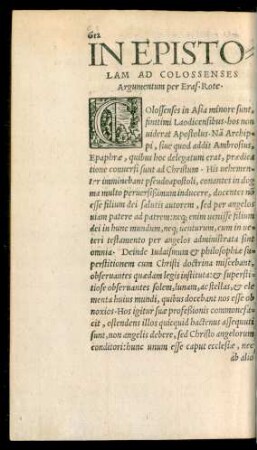 612
IN EPISTO
LAM AD COLOSSENSES
Argumentum per Eras. Rote.
COlossenses in Asia minore sunt,
finitimi Laodicensibus. hos non
uiderat Apostolus. Nā Archip-
pi, siue quod addit Ambrosius,
Epaphræ, quibus hoc delegatum erat, prædica-
tione conuersi sunt ad Christum. His uehemen-
ter imminebant pseudoapostoli, conantes in dog
ma multo peruersissimum inducere, docentes nō
esse filium dei salutis autorem, sed per angelos
uiam patere ad patrem: neq; enim uenisse filium
dei in hunc mundum, neq; uenturum, cum in ue-
teri testamento per angelos administrata sint
omnia. Deinde Iudaismum & philosophiæ su-
perstitionem cum Christi doctrina miscebant,
obseruantes quædam legis instituta: & supersti-
tiose obseruantes solem, lunam, ac stellas, & ele
menta huius mundi, quibus docebant nos esse ob
noxios. Hos igitur suæ professionis commonefa-
cit, ostendens illos quicquid hactenus assequuti
sunt, non angelis debere, sed Christo angelorum
conditori: hunc unum esse caput ecclesiæ, nec
ab alio